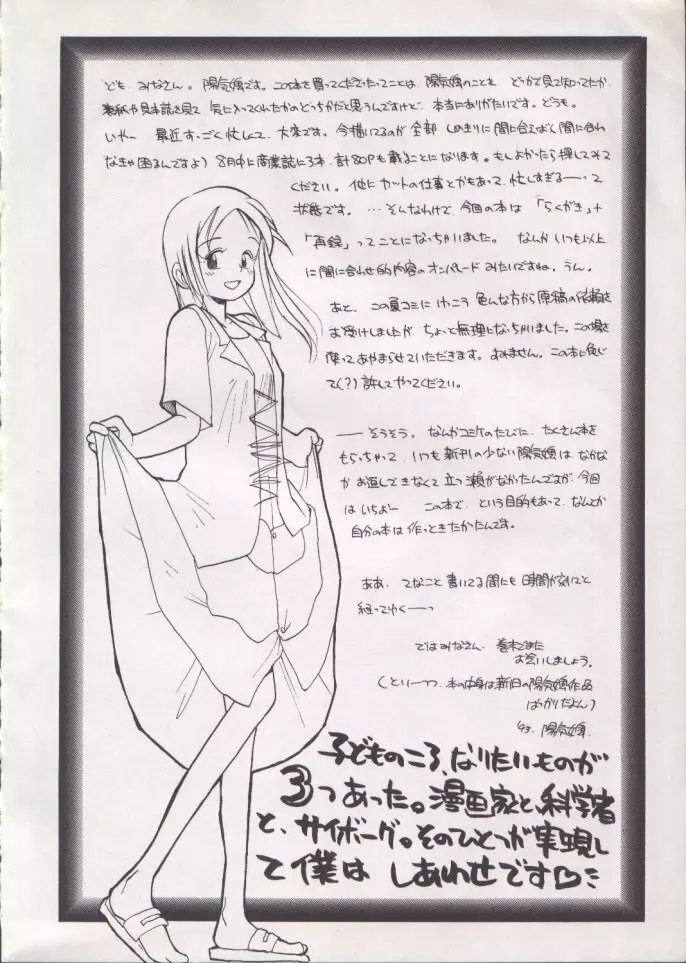 ども、みなさん。陽気婢です。この本を買ってくださったってことは、陽気婢のことを どっかで見て知ってたか、
表紙や見本誌を見て 気に入ってくれたかのどっちかだと思うんですけど、本当にありがたいです。どうも。
いやー 最近すっごく忙しくて、大変です。今描いてるのが全部 しめきりに間に合えばく間に合わ
なきゃ困るんですよ）8月中に商業誌に3本、計80Pも載ることになります。もしよかったら探してみて
ください。他にカットの仕事とかもあって、忙しすぎるーーって
状態です。…そんなわけで、今回の本は「らくがき」+
「再録」ってことになっちゃいました。なんか いつも以上
に間に合わせ的内容のオンパレードみたいですね。うん。
あと、この夏コミに けっこう 色んな方から原稿の依頼を
お受けしましたが、ちょっと無理になっちゃいました。この場を
使ってあやまらせていただきます。すみません。この本に免じ
て（？）許してやってください。
――そうそう。なんかコミケのたびに、たくさん本を
もらっちゃって、いつも新刊の少ない陽気婢は、なかな
かお返しできなくて立つ瀬がなかったんですが、今回
はいちおー この本で、という目的もあって、なんとか
自分の本は作っときたかったんです。
ああ、てなこと 書いてる間にも 時間が刻々と
経ってゆくーーっ
ではみなさん、巻末でまた
お会いしましょう。
（といーつつ、本の中身は新旧の陽気婢作品
ばっかりだよん）
'93. 陽気婢.
子どものころ、なりたいものが
3つあった。漫画家と、科学者
と、サイボーグ。そのひとつが実現し
て僕は しあわせです♡